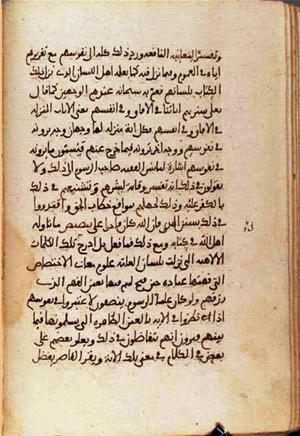 وتفسيرا لمعانيه النافعه ورد ذلك كله الى نفوسهم مع تقريرهم
اياه في العموم وفيما نزل فيه كما يعلمه اهل اللسان الذين نزل ذلك
الكتاب بلسانهم فعم به سبحانه عندهم الوجهين كما قال
تعلى سنريهم اياتنا في الافاق وفي انفسهم يعني الايات المنزله
في الافاق وفي انفسهم فكل اية منزله لها وجهان وجه يرونه
في نفوسهم ووجه اخر يرونه فيما خرج عنهم فيسمون ما يرونه
في نفوسهم اشارة ليأنس الفقيه صاحب الرسوم الى ذلك ولا
يقولون في ذلك انه تفسير وقاية لشرهم وتشنيعهم في ذلك
بالكفر عليه وذلك لجهلهم بمواقع خطاب الحق واقتدوا
في ذلك بسنن الهدى فان الله كان قادرا على تنصيص ما تاوله
اهل الله في كتابه ومع ذلك فما فعل بل ادرج تلك الكلمات
الالهيه التي نزلت بلسان العامه علوم معاني الاختصاص
التي فهمها عباده حين فتح لهم فيها بعين الفهم الذي
رزقهم ولو كان علما الرسوم ينصفون لاعتبروا في نفوسهم
اذا نظروا في الاية بالعين الظاهره التي يسلمونها فيما
بينهم فيرون انهم يتفاضلون في ذلك ويعلو بعضهم على
بعض في الكلام في معنى تلك الاية ويقر القاصر بفضل